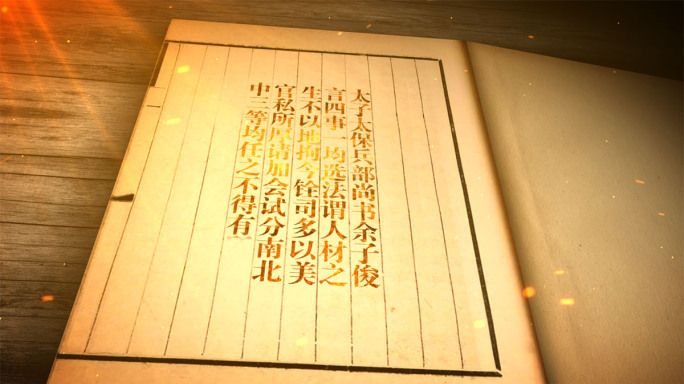 太子太保兵部尚书余子俊
言四事一均选法谓人材之
生不以地拘今铨司多以美
官私所厚请加会试分南北
中三等均任之不得有